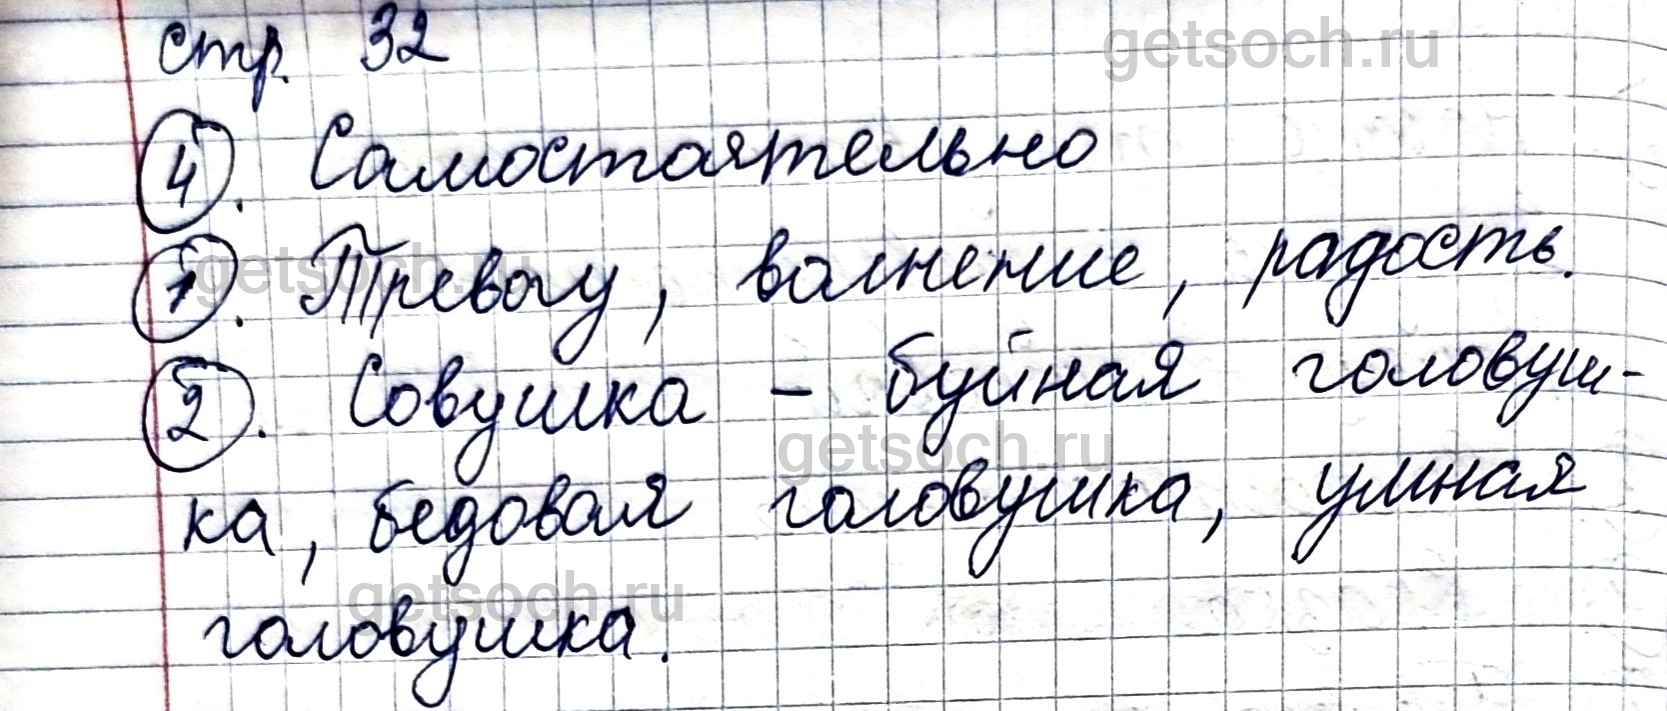 стр. 32
getsoch.ru
4. Самостоятельно
1. Тревогу, волнение, радость.
getsoch.ru
2. Совушка - буйная головуш-
getsoch.ru
ка, бедовая головушка, умная
getsoch.ru
головушка.